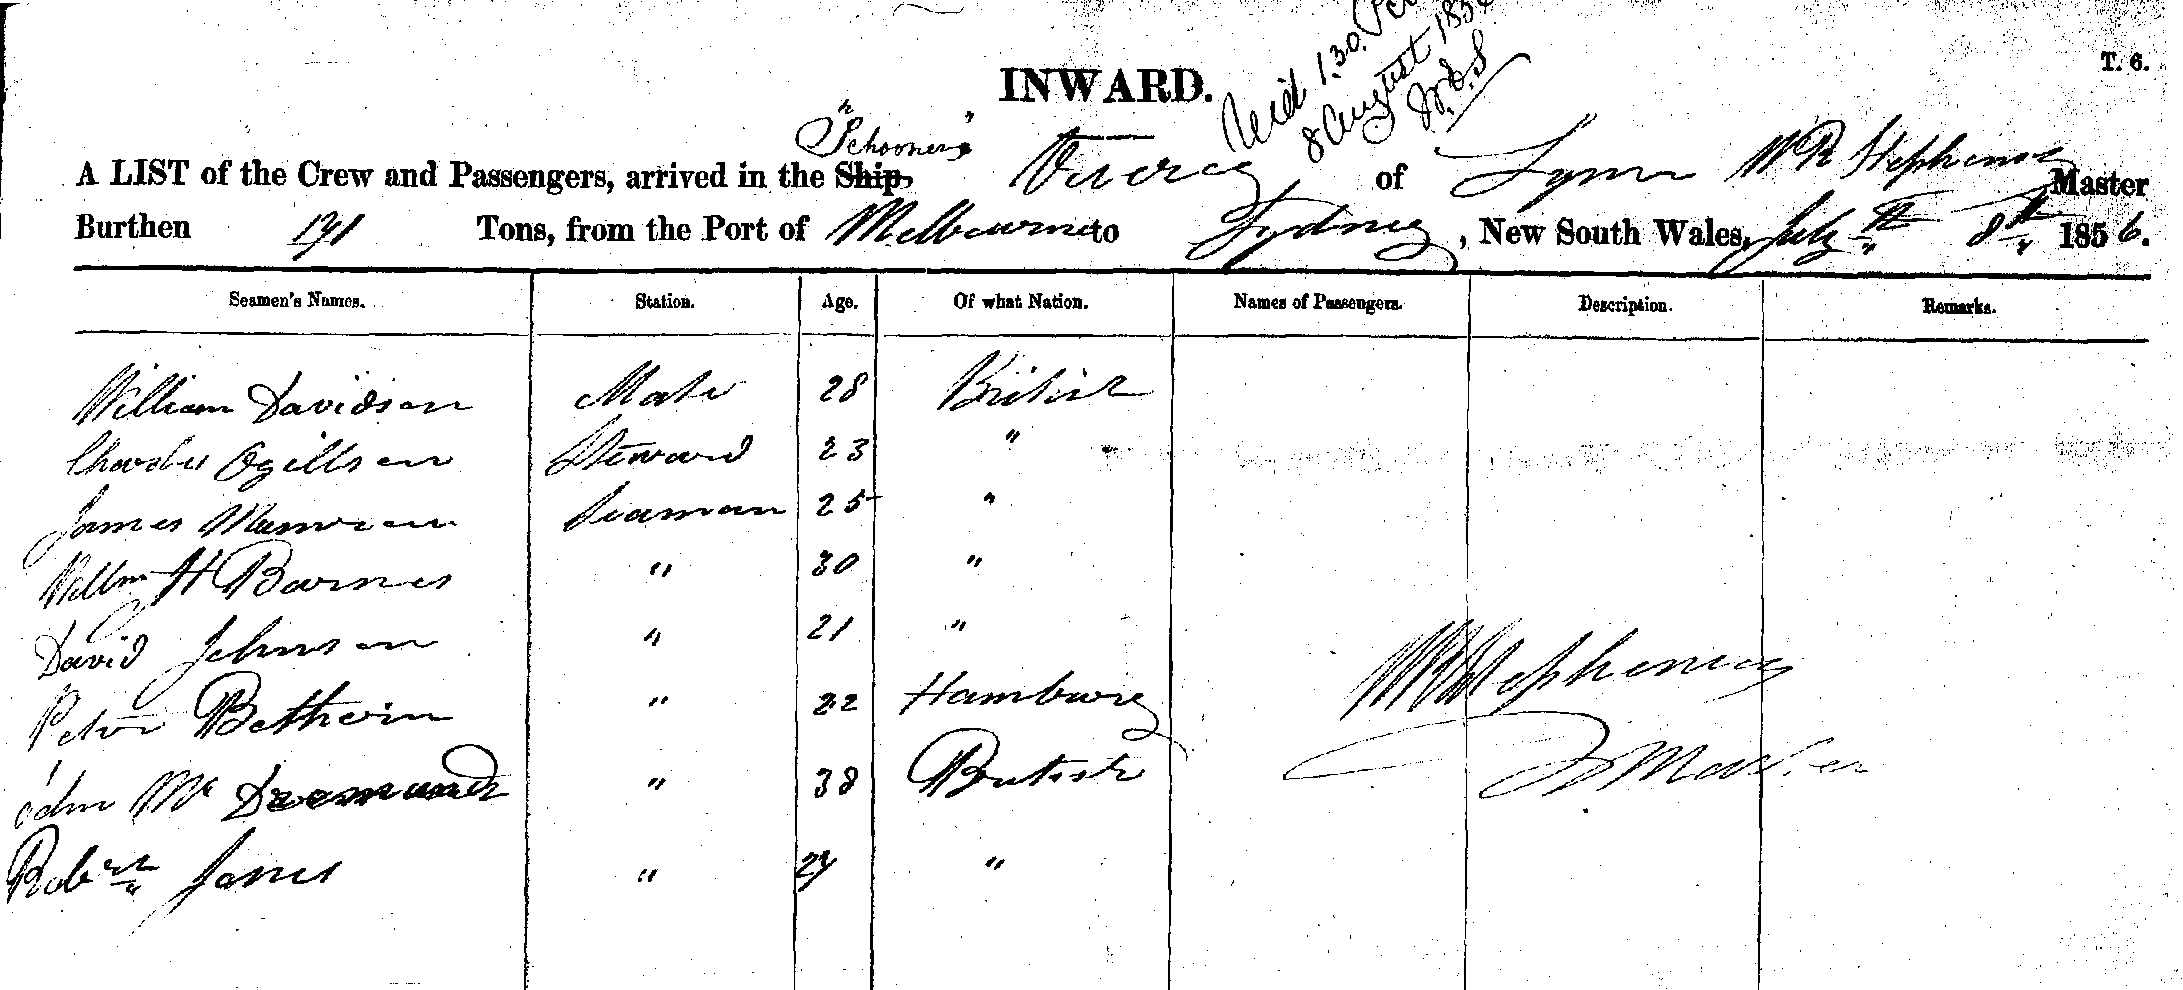 T. 6.
INWARD.
1.30.
8 August 185
"Schooner"
A LIST of the Crew and Passengers, arrived in the Ship, of Lynn W R Stephenson Master
Burthen 191 Tons, from the Port of Melbourne to Sydney, New South Wales, July 8th 1856.
Seamen's Names. Station. Age. Of what Nation. Names of Passengers. Description. Remarks.
William Davidson Mate 28 British
Charles Ogillson Steward 23 "
James Seaman 25 "
Willm H Barnes " 30 "
David Johnson " 21 "
Peter " 22 Hamburg
W R Stephenson
John Mc " 38 British
Master
Robert Jones " "